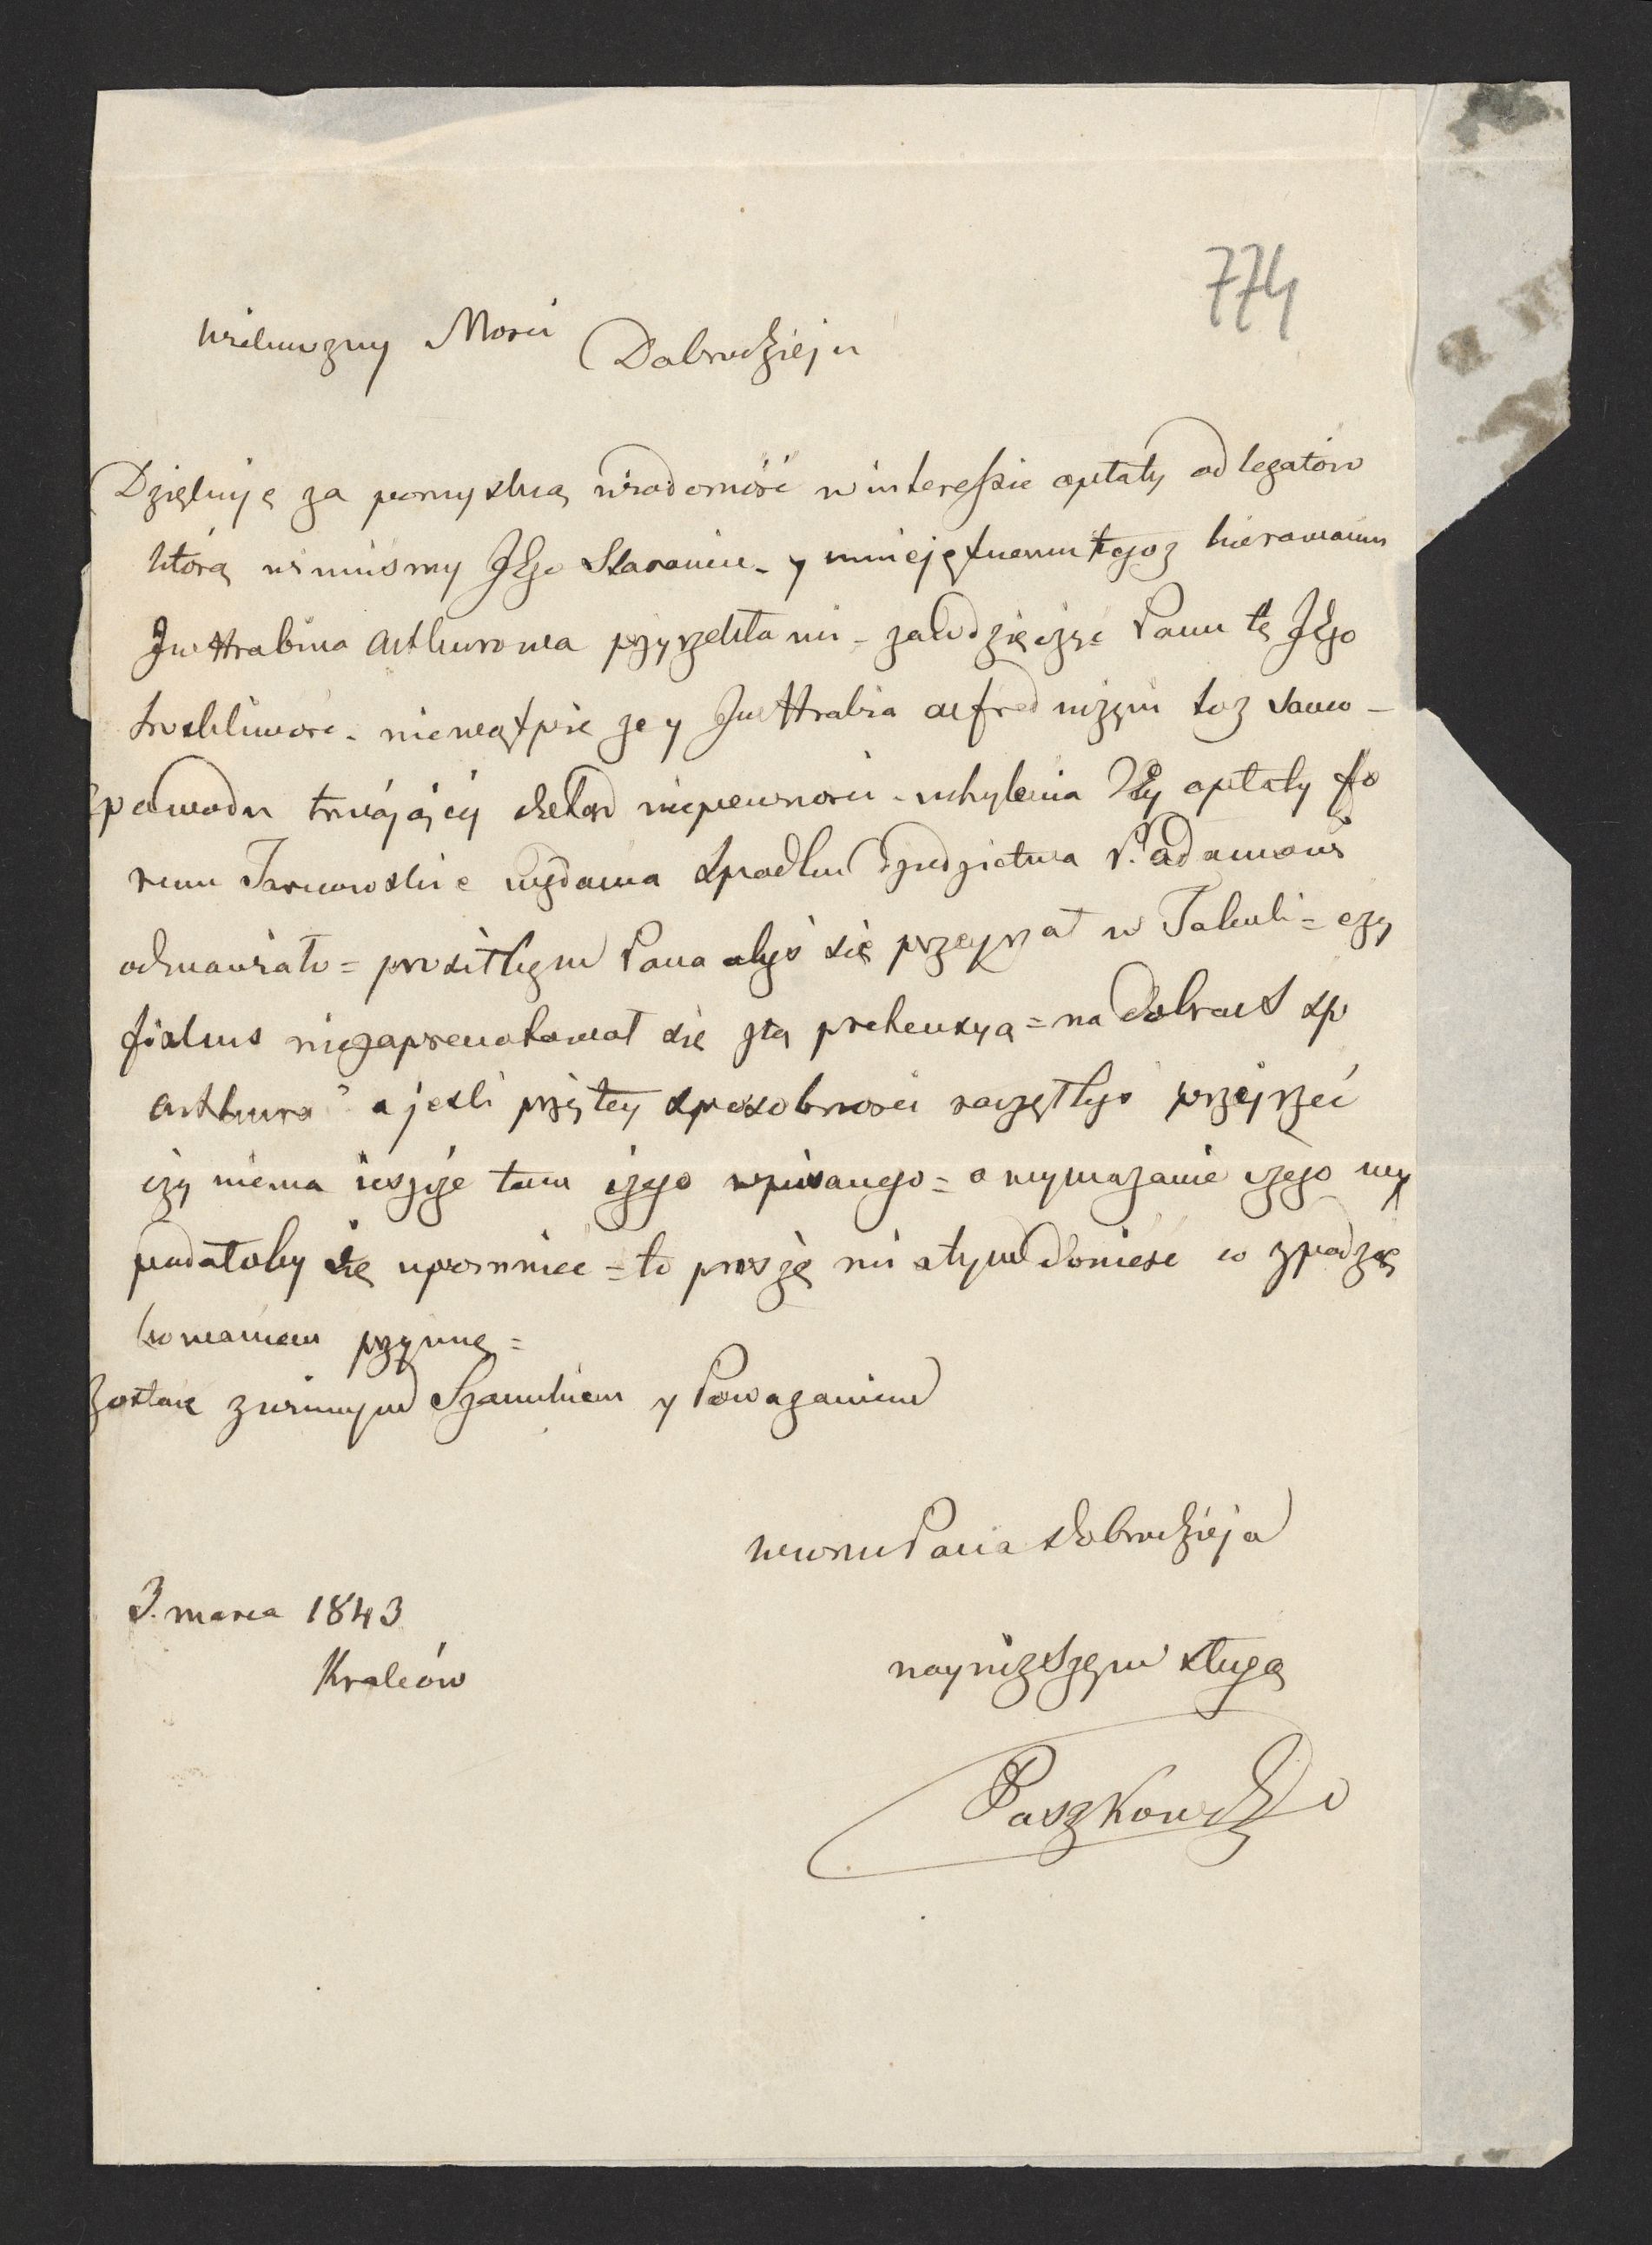 774
Wielmożny Mości Dobrodzieju
Dziękuję za pomyslną wiadomość w interessie opłaty od legatów
którą winniśmy JEgo Staraniu - y umiejętnemu tegoż kierowaniu
JW Hrabina Arthurowa przyrzekła mi - zawdzięczyć Panu tę JEgo
troskliwość - niewątpię że y JW Hrabia Alfred uczyni toż samo -
z powodu trwającey dotąd niepewności - uchylenia tey opłaty fo
rum Tarnowskie wydania spadku Dziedzictwa P. Adamowi
odmawiało = prosiłbym Pana abyś się przeyrzał w Tabuli = czy
fiskus niezaprenotował się z tą pretensyą = na dobrach sp
Arthura a jeśli przy tey sposobności raczyłbyś przejrzeć
czy niema ieszcze tam czego wpisanego = o wymazanie czego wy
padałoby się upomnieć = to proszę mi o tym donieść co z podzię
kowaniem przyimę =
Zostaię z winnym Szacunkiem y Poważaniem
Pana Dobrodzieja
3. marca 1843
Kraków
nayniższym sługą
Paszkowski